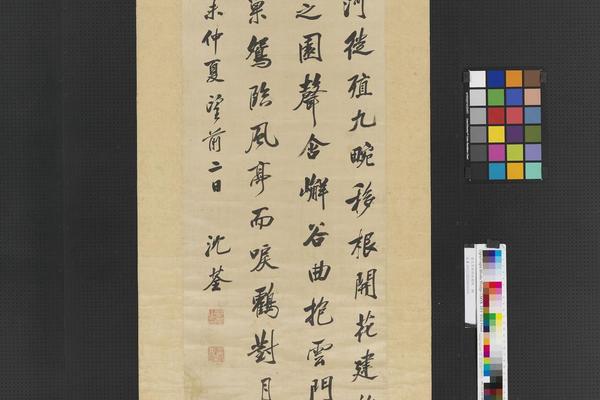 河徙殖九畹移根開花建
之園聲含嶰谷曲抱雲門
巢鴛臨風亭而唳鶴對月
未仲夏望前二日
沈荃